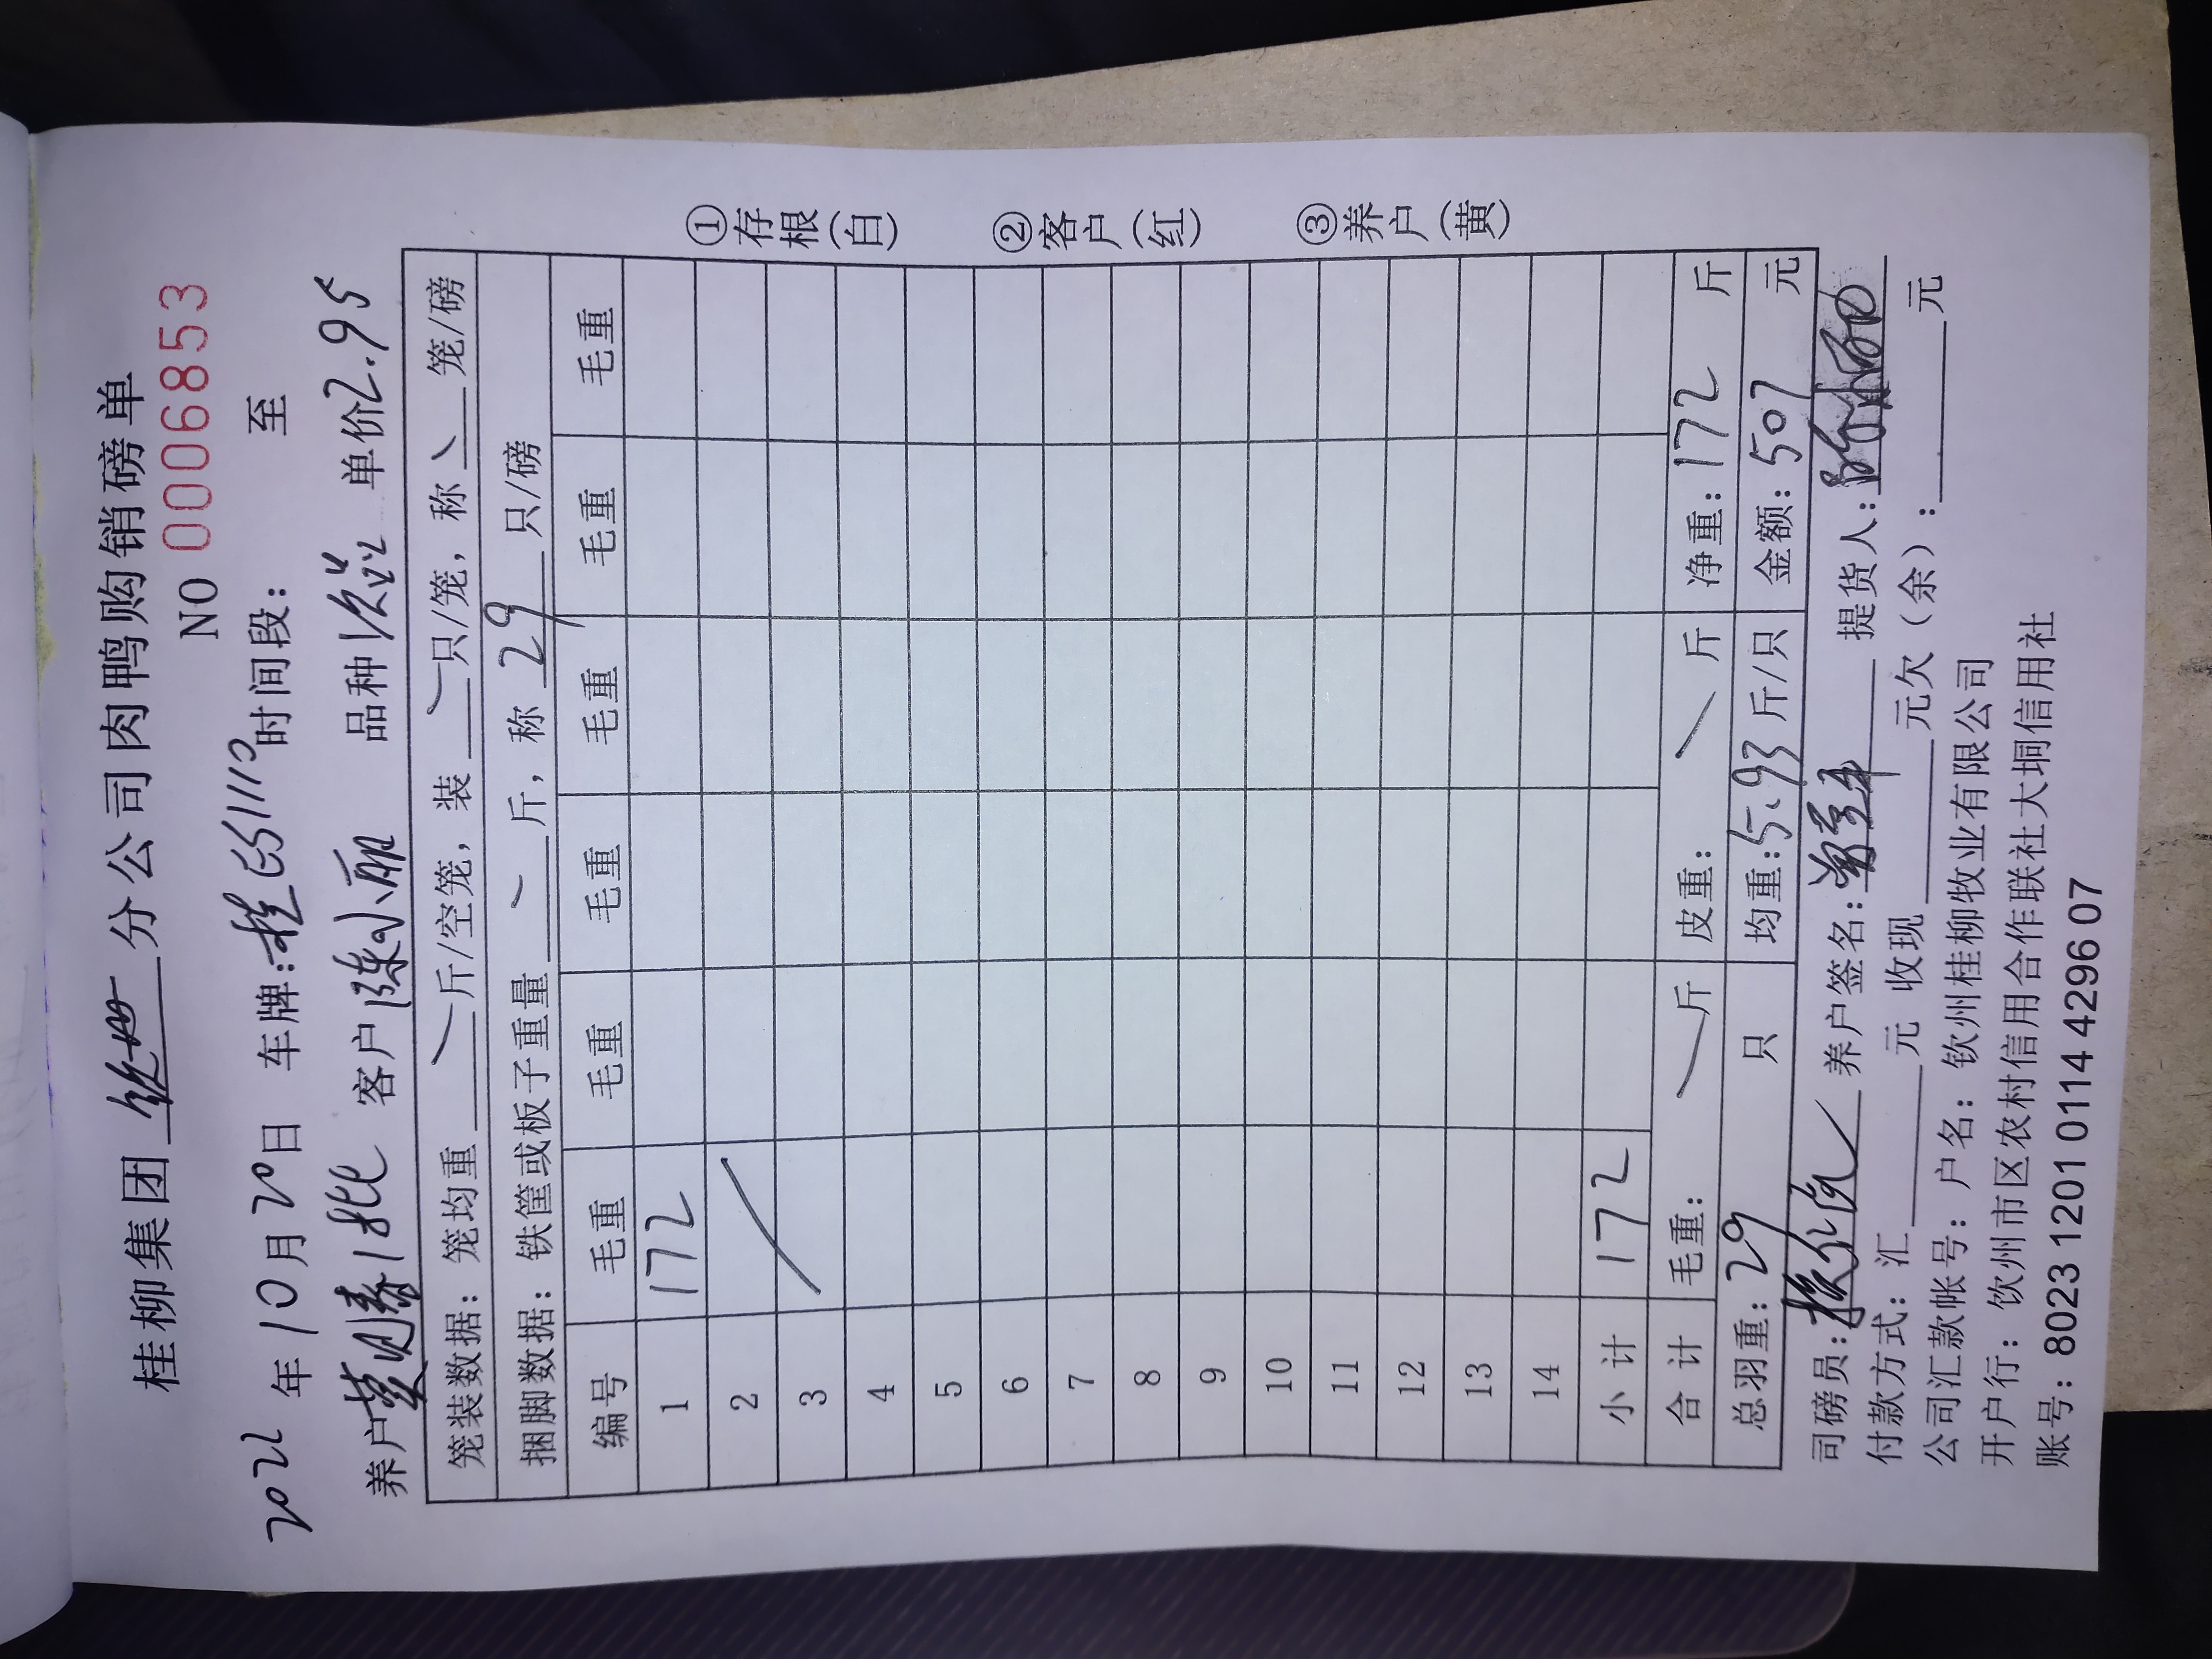 桂柳集团 分公司肉鸭购销磅单
NO 0006853
2022 年 10 月 20 日 车牌:桂E51110 时间段: 至
养户 客户 陈小丽 品种 单价 2.95
笼装数据:笼均重 / 斤/空笼,装 / 只/笼,称 / 笼/磅
捆脚数据:铁筐或板子重量 / 斤,称 29 只/磅
编号 毛重 毛重 毛重 毛重 毛重 毛重
1 172
2
3
4
5
6
7
8
9
10
11
12
13
14
小计 172
合计 毛重: / 斤 皮重: / 斤 净重:172 斤
总羽重:29 只 均重:5.93 斤/只 金额:507 元
①存根(白)
②客户(红)
③养户(黄)
司磅员: 养户签名: 提货人:
付款方式:汇 元 收现 元欠(余): 元
公司汇款帐号:户名:钦州桂柳牧业有限公司
开户行:钦州市区农村信用合作联社大垌信用社
账号:8023 1201 0114 4296 07